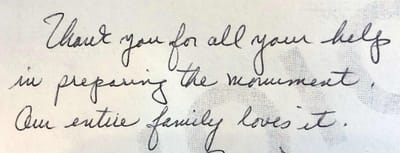 Thank you for all your help
in preparing the monument.
Our entire family loves it.